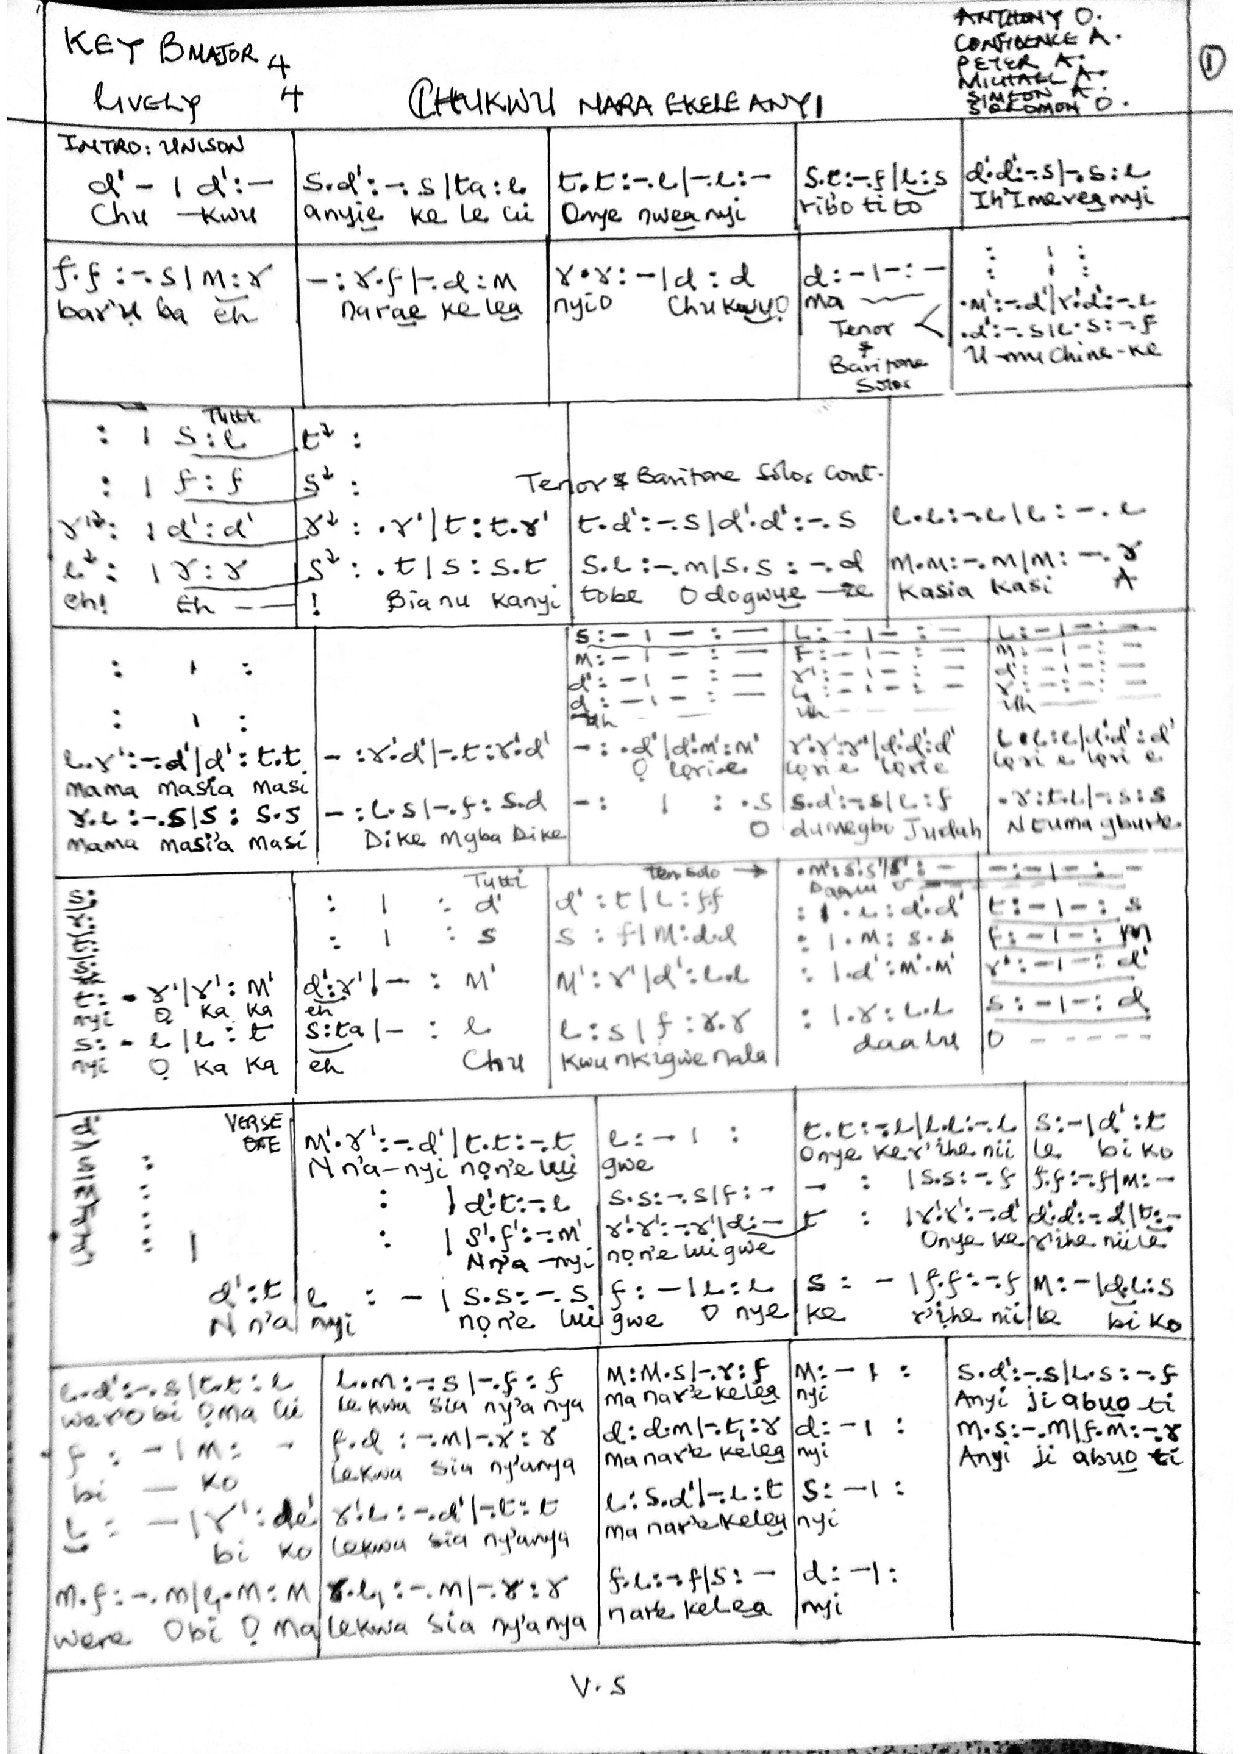 KEY B MAJOR 4
LIVELY 4
CHUKWU NARA EKELE ANYI
ANTHONY O.
CONFIDENCE A.
PETER A.
MICHAEL A.
SIMEON A.
SOLOMON O.
1
INTRO: UNISON
d' – | d' : – s.d' : –. s | ta : l t.t : –.l | –.l : – s.t : –.f | l : s d'.d' : –.s | –.s : l
Chu – kwu anyie ke le lii Onye nwea nyi ribo ti to Ih'Imerea nyi
f.f : –.s | m : r – : r.f | –.d : m r.r : – | d : d d : – | – : –
bar'ụ ba eh narae ke lea nyiO ChukwuỌ ma
.m' : –.d' | r'.d' : –.l
.d' : –.s | l.s : –.f
Tenor & Baritone Solos
U-mu Chine-ke
Tutti
: | s : l t :
: | f : f s :
Tenor & Baritone Solos Cont.
r' : | d' : d' r : .r' | t : t.r' t.d' : –.s | d'.d' : –.s l.l : –.l | l : –.l
l : | r : r s : .t | s : s.t s.l : –.m | s.s : –.d m.m : –.m | m : –.r
eh! Eh –– ! Bia nu kanyi tobe Odogwue – ze kasia kasi A
s : – | – : – l : – | – : – l : – | – : –
m : – | – : – f : – | – : – m : – | – : –
d' : – | – : – r' : – | – : – d' : – | – : –
Uh Uh Uh
l.r' : –.d' | d' : t.t – : r'.d' | –.t : r'.d' – : .d' | d'.m' : m' r'.r' : r' | d'.d' : d' l.l : l | d'.d' : d'
mama masia masi Ọ lorie lorie lorie lori e lori e
r.l : –.s | s : s.s – : l.s | –.f : s.d – : | : .s s.d' : –.s | l : f .r : t.l | –.s : s
mama masi'a masi Dike Mgba Dike O dumegbu Judah
Tutti
Ten solo →
: | : d' d' : t | l : f.f : | .l : d'.d' t : – | – : s
: | : s s : f | m : d.d : | .m : s.s f : – | – : m
t : – r' | r' : m' d' : r' | – : m' m' : r' | d' : l.l : | .d' : m'.m' r' : – | – : d'
nyi Ọ ka ka eh
s : – l | l : t s : ta | – : l l : s | f : r.r : | .r : l.l s : – | – : d
nyi Ọ ka ka eh Chu kwu nkigwe nala daalu O
VERSE
ONE
m'.r' : –.d' | t.t : –.t l : – | : t.t : –.l | l.l : –.l s : – | d' : t
N n'a-nyi nọn'e lui gwe Onye ker'ihe nii le bi ko
: | d'.t : –.l s.s : –.s | f : – – : | s.s : –.f f.f : –.f | m : –
: | s'.f' : –.m' r'.r' : –.r' | d' : – t : | r'.r' : –.d' d'.d' : –.d | t : –
Nn'a – nyi nọn'e lui gwe Onye ke r'ihe nii le
d' : t | l : – | s.s : –.s f : – | l : l s : – | f.f : –.f m : – | d.l : s
N n'a nyi nọn'e lui gwe O nye ke r'ihe nii le bi ko
l.d' : –.s | t.t : l l.m : –.s | –.f : f m : m.s | –.r : f m : – | : s.d' : –.s | l.s : –.f
were obi Ọma lii le kwa sia ny'a nya ma nar'e kelea nyi Anyi ji abuo ti
f : – | m : – f.d : –.m | –.r : r d : d.m | –.t₁ : r d : – | : m.s : –.m | f.m : –.r
bi – ko lekwa sia ny'anya ma nar'e kelea nyi Anyi ji abuo ti
l : – | r' : de' r'.l : –.d' | –.t : t l : s.d' | –.l : t s : – | :
bi ko lekwa sia ny'anya ma nar'e kelea nyi
m.f : –.m | l₁.m : m r.l₁ : –.m | –.r : r f.l : –.f | s : – d : – | :
were Obi Ọ ma lekwa sia ny'a nya nar'e kelea nyi
V.S